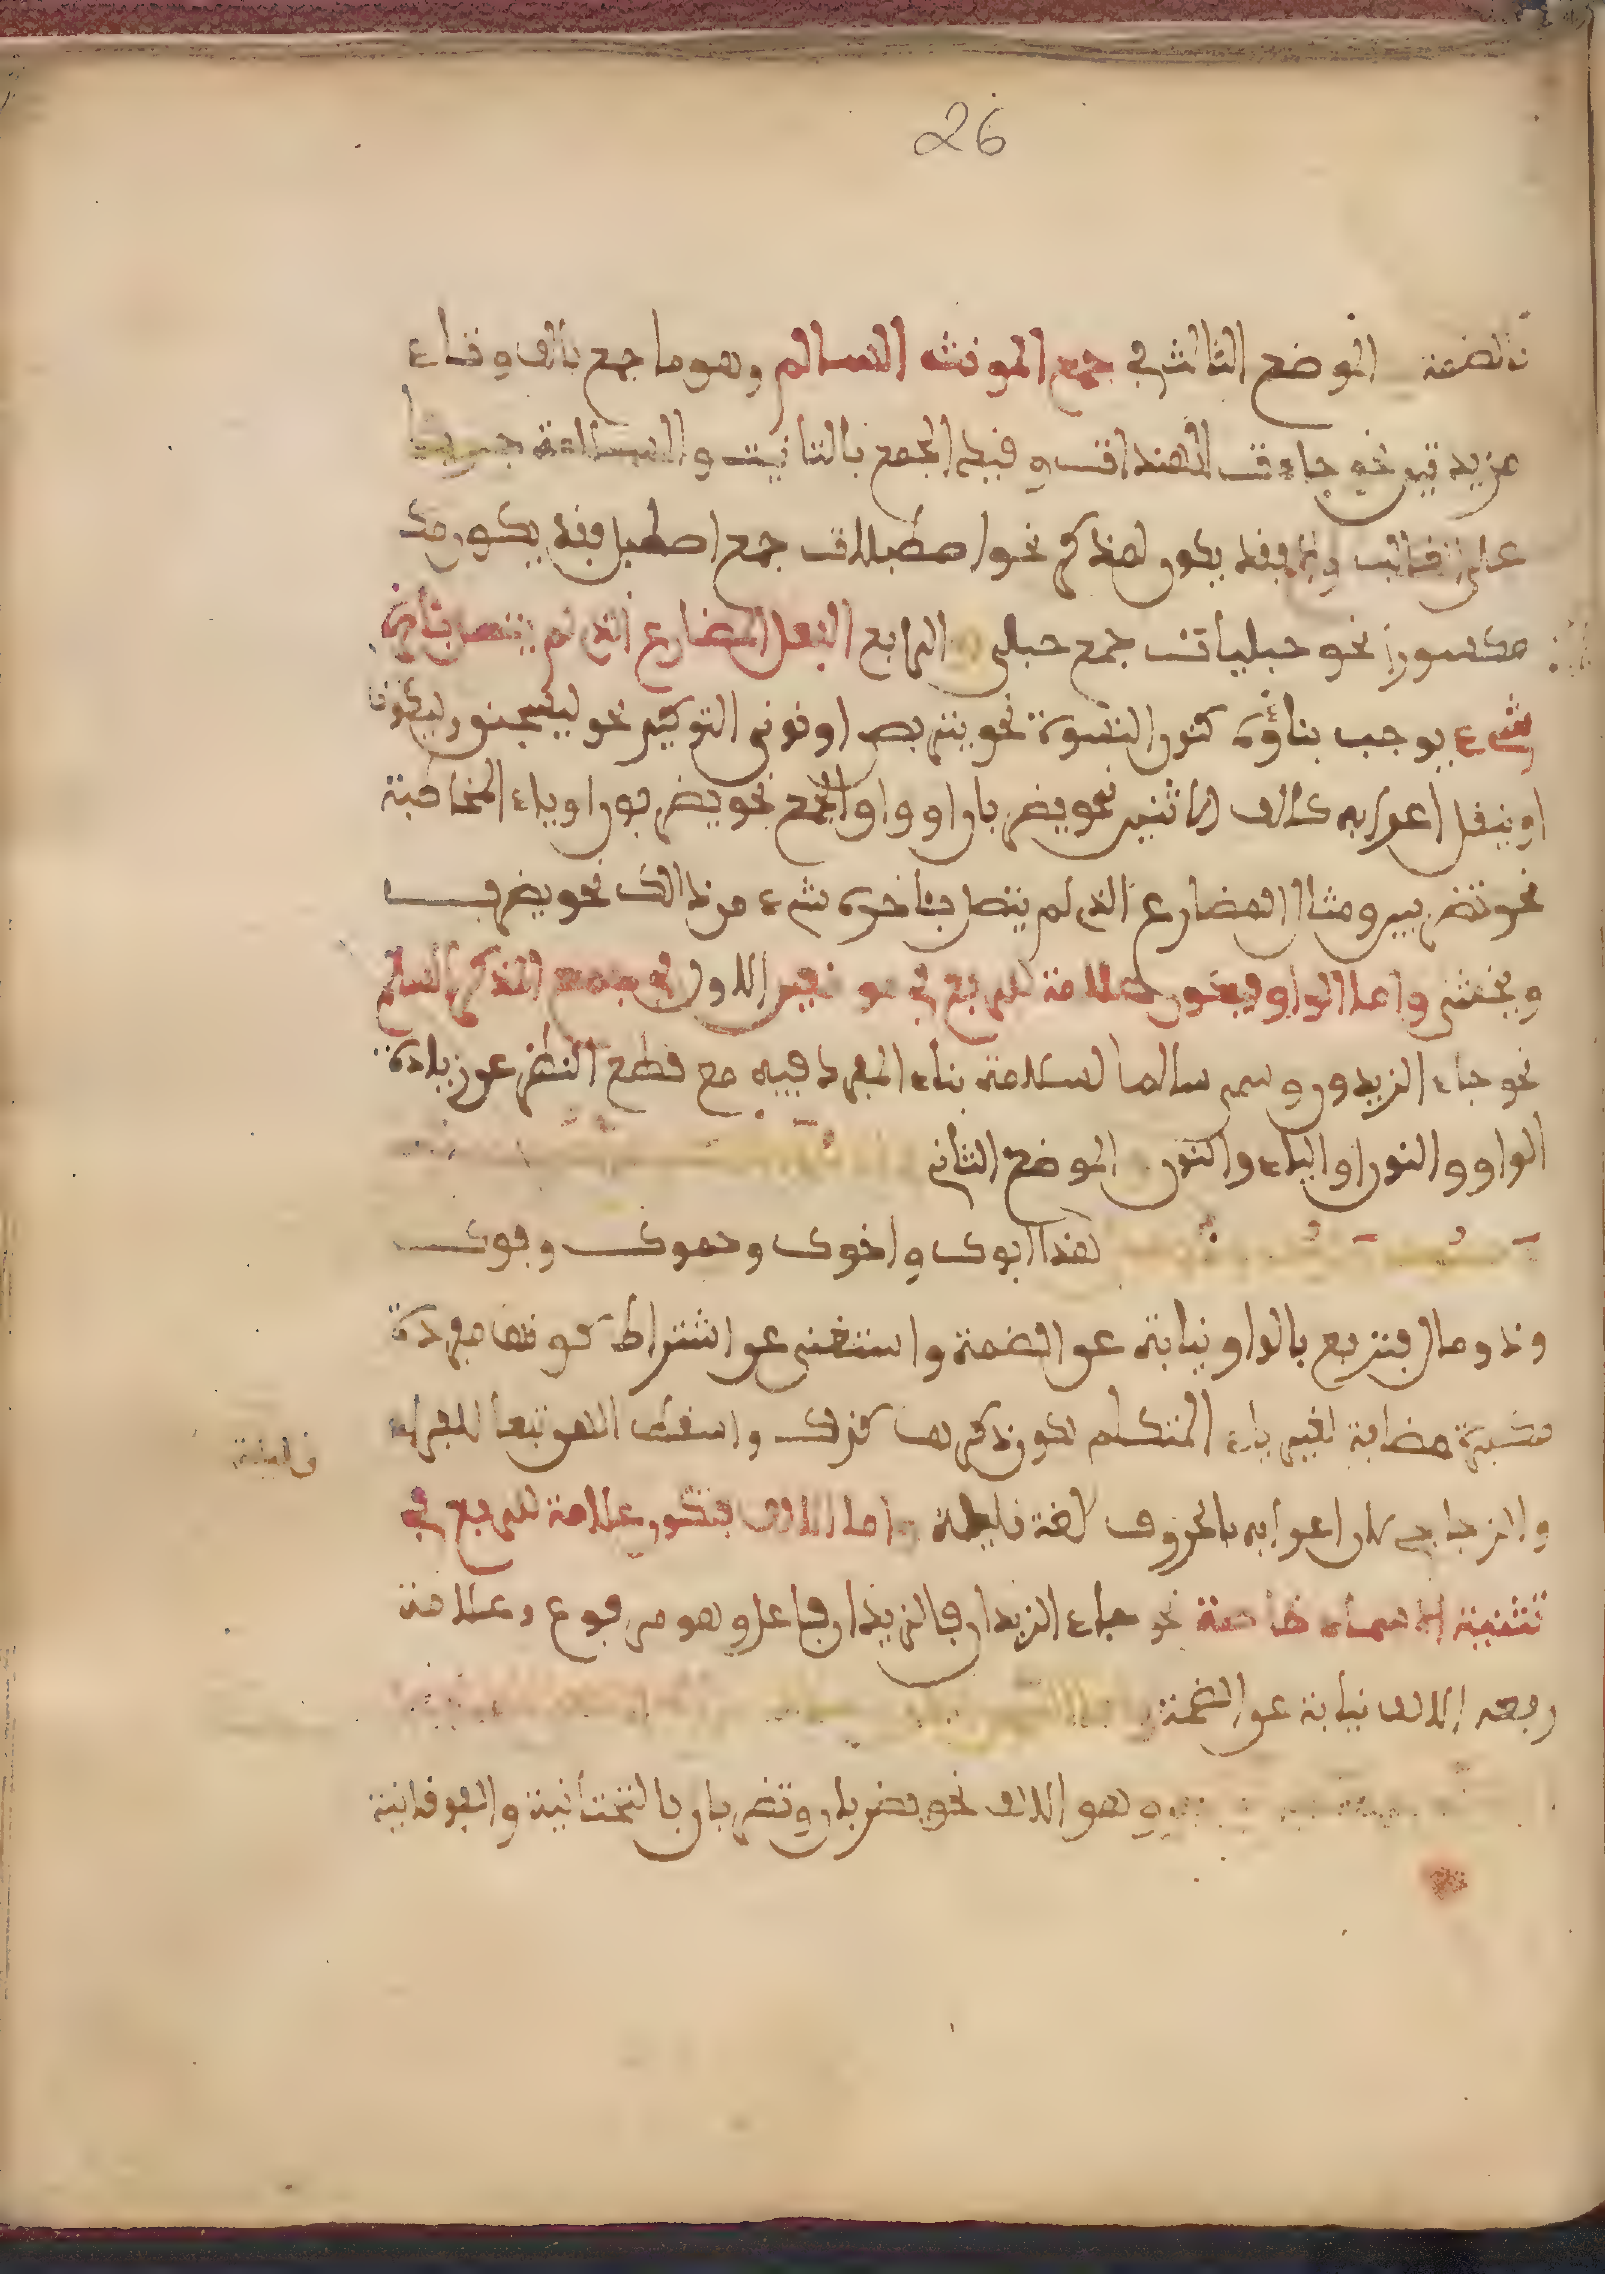 26
بالضمة الموضع الثالث في جمع المونث السالم وهو ما جمع بالف وتاء
مزيدتين نحو جاءت الهندات وقيد الجمع بالتانيث والسلامة جريا
على الغالب والا فقد يكون لمذكر نحو اصطبلات جمع اصطبل وقد يكون مك
مكسورا نحو حبليات جمع حبلى الرابع الفعل المضارع الذي لم يتصل بثاخره
شيء يوجب بناؤه كنون النسوة نحو يتربصن او نوني التوكيد نحو ليسجنن وليكونا
او ينقل اعرابه كالف الاثنين نحو يضربان او واو الجمع نحو يضربون او ياء المخاطبة
نحو تضربين ومثال المضارع الذي لم يتصل بثاخره شيء من ذالك نحو يضرب
ويخشى واما الواو فتكون علامة للرفع في موضعين الاول في جمع المذكر السالم
نحو جاء الزيدون وسمي سالما لسلامة بناء المفرد فيه مع قطع النظر عن زيادة
الواو والنون او الياء والنون الموضع الثاني
هذا ابوك واخوك وحموك وفوك
وذو مال فترفع بالواو نيابة عن الضمة واستغنى عن اشتراط كونها مفردة
مكبرة مضافة لغير ياء المتكلم لكون ذكرها كذلك واسقط الهن تبعا للفراء
والزجاجي لان اعرابه بالحروف لغة قليلة واما الالف فتكون علامة للرفع في
تثنية الاسماء خاصة نحو جاء الزيدان فالزيدان فاعل وهو مرفوع وعلامة
رفعه الالف نيابة عن الضمة
وهو الالف نحو يضربان وتضربان بالتحتانية والفوقانية